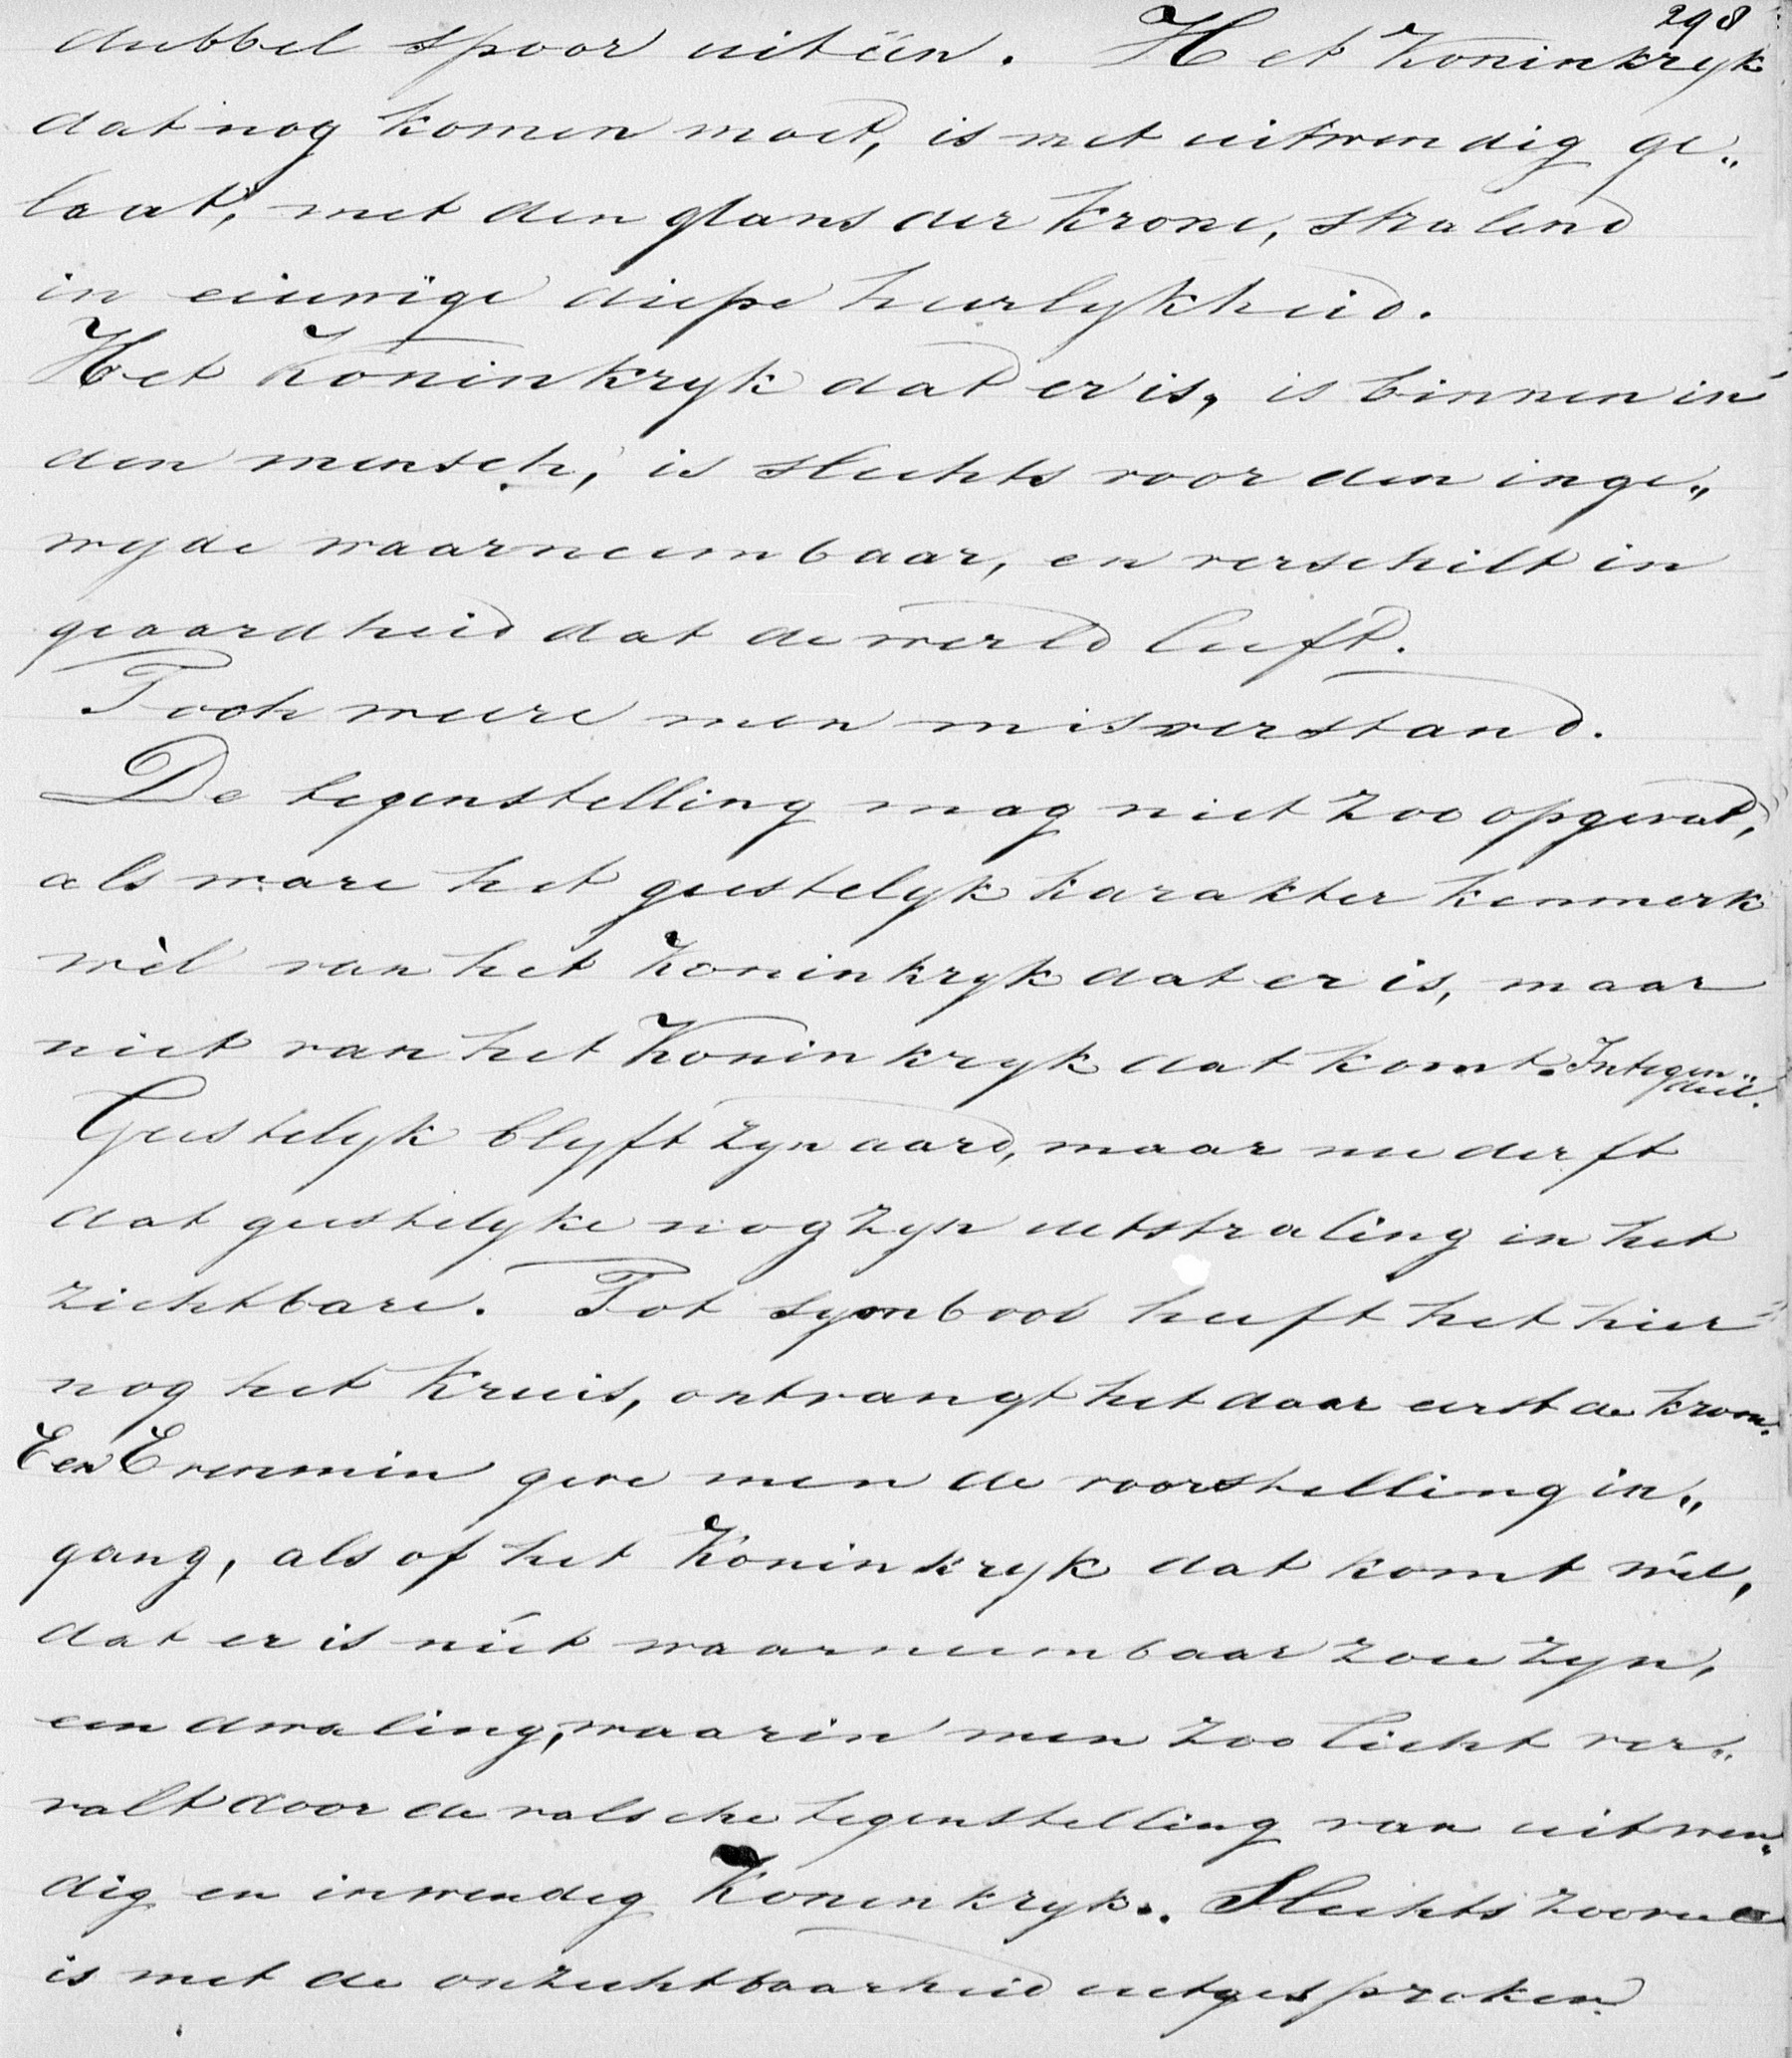 298
dubbel spoor uitéén. Het Koninkryk
dat nog komen moet, is met uitwendig ge„
laat, met den glans der Krone, stralend
in eeuwige diepe heerlykheid.
Het Koninkryk dat er is, is binnen in
den mensch, is slechts voor den inge„
wyde waarneembaar, en verschilt in
geaardheid dat de wereld leeft.
Toch weere men misverstand.
De tegenstelling mag niet zoo opgevat,
als ware het geestelyk karakter kenmerk
wèl van het Koninkryk dat er is, maar
niet van het Koninkryk dat komt. Integen„
deel.
Geestelyk blyft zyn aard, maar nu derft
dat geestelyke nog zyn uitstraling in het
zichtbare. Tot symbool heeft het hier
nog het Kruis, ontvangt het daar eerst de kroon.
Een Evenmin geve men de voorstelling in„
gang, als of het Koninkryk dat komt wél,
dat er is niet waarneembaar zou zyn,
een dwaling, waarin men zoo licht ver„
valt door de valsche tegenstelling van uitwen„
dig en inwendig Koninkryk. Slechts zooveel
is met de onzichtbaarheid uitgesproken